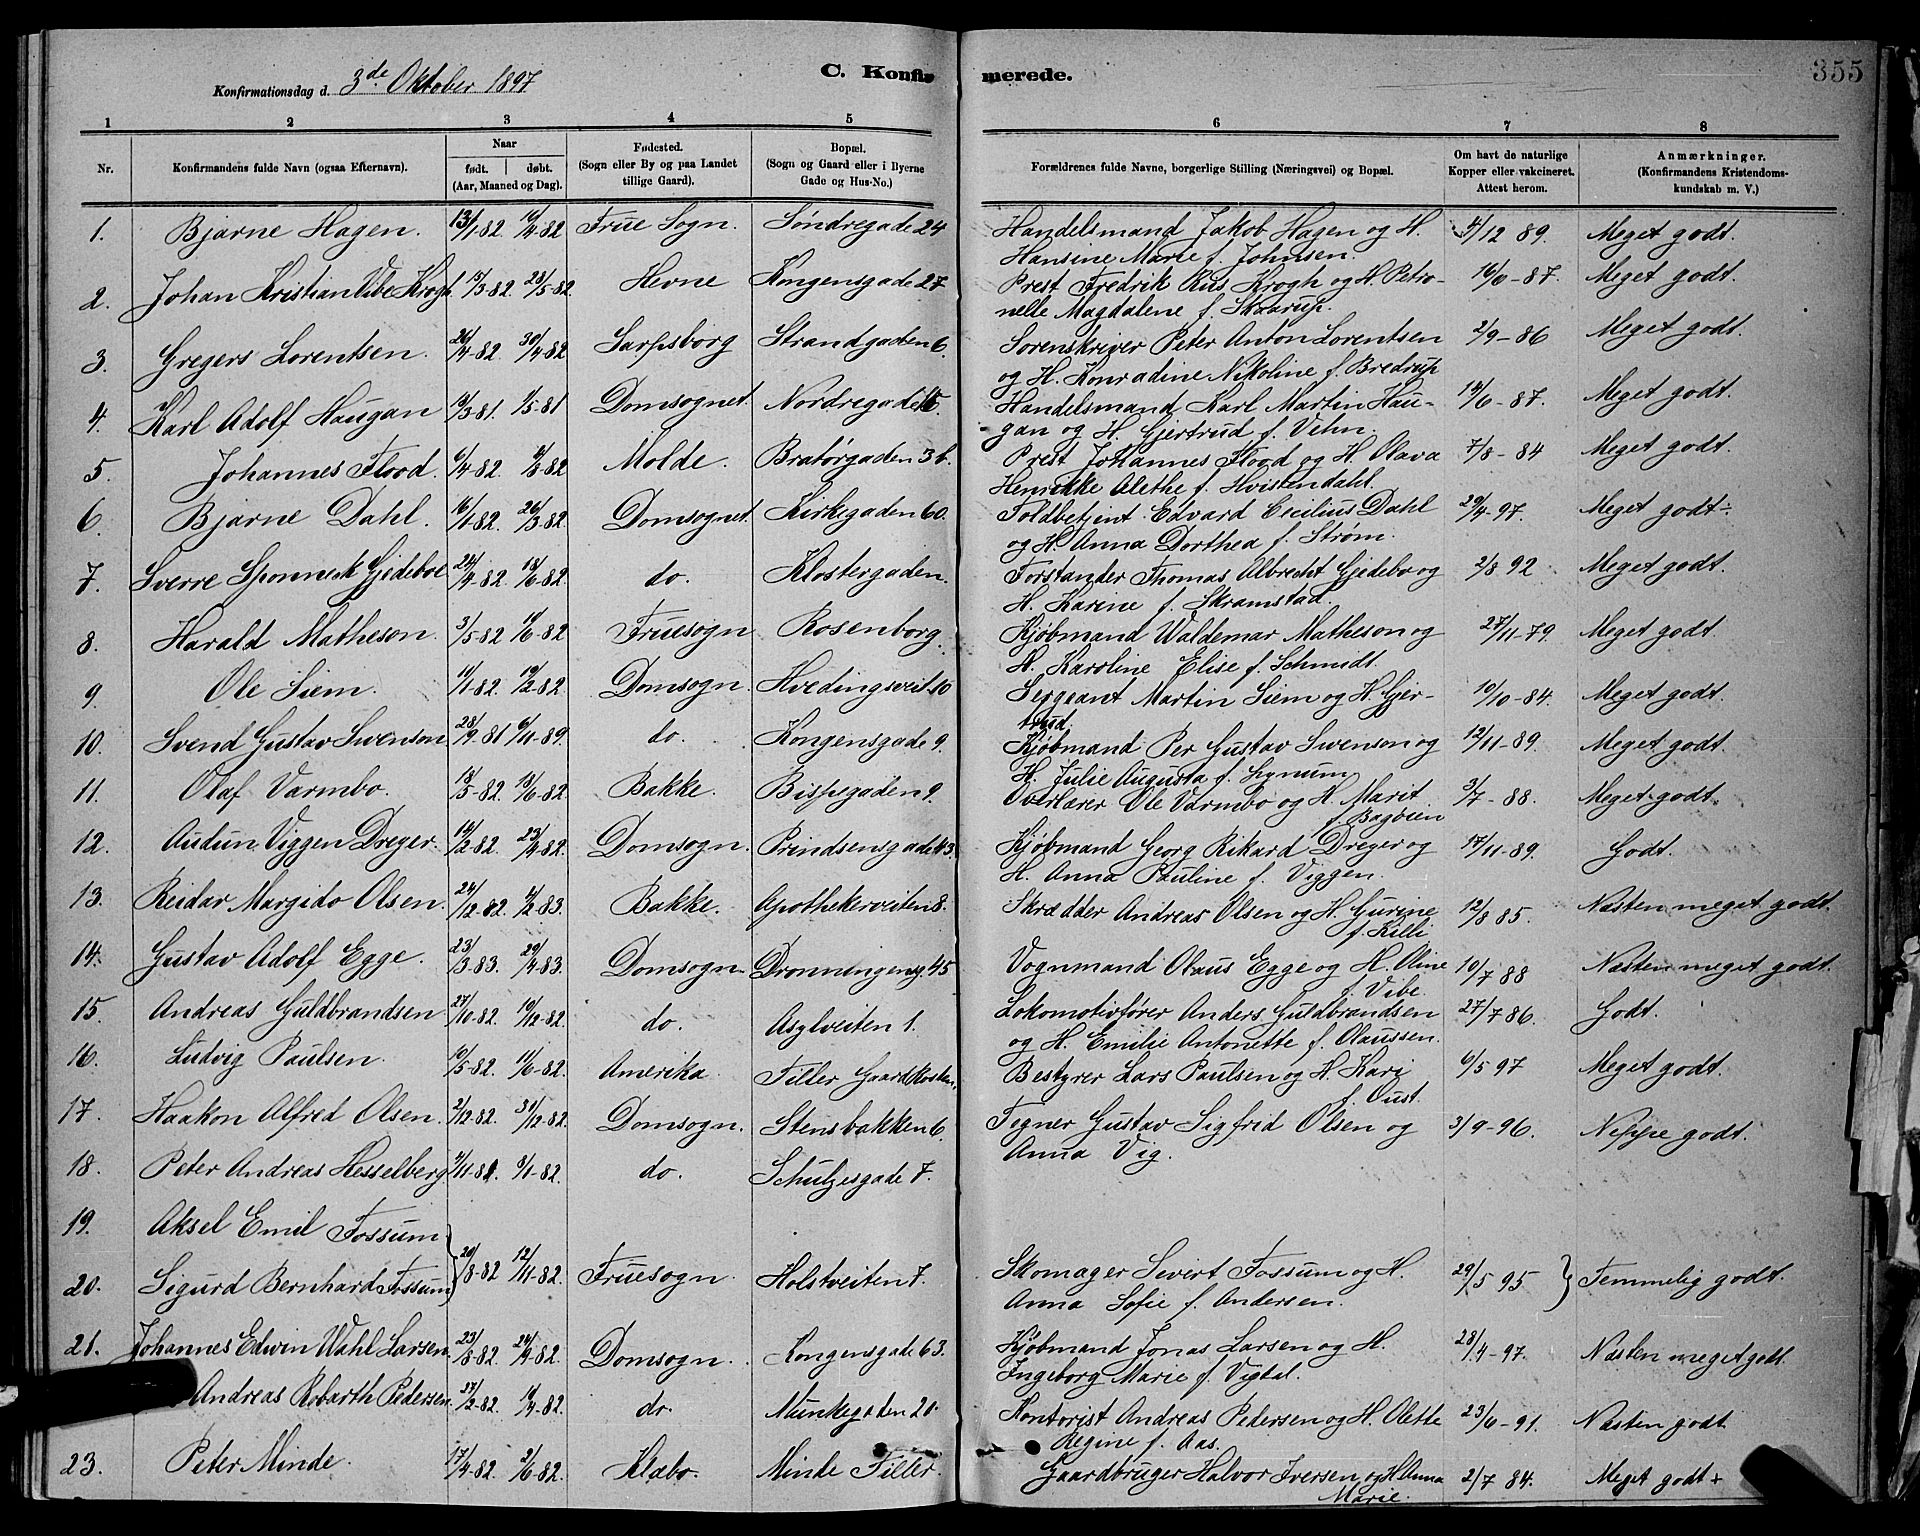 Konfirmationsdag d. 3de Oktober 1897
C. Konfirmerede.
355
1 2 3 4 5 6 7 8
Nr. Konfirmandens fulde Navn (ogsaa Efternavn). Naar født. døbt. (Aar, Maaned og Dag). Fødested. (Sogn eller By og paa Landet tillige Gaard). Bopæl. (Sogn og Gaard eller i Byerne Gade og Hus-No.) Forældrenes fulde Navne, borgerlige Stilling (Næringsvei) og Bopæl. Om havt de naturlige Kopper eller vakcineret. Attest herom. Anmærkninger. (Konfirmandens Kristendomskundskab m. V.)
1. Bjarne Hagen. 13/1-82 Frue Sogn. Søndregade 24 Handelsmand Jakob Hagen og H. 4/12 89. Meget godt.
Hansine Marie f. Johnsen.
2. Johan Kristian Vibe Krogh Hevne Kongensgade 27 Prest Fredrik Rus Krogh og H. Petro- 16/6-87. Meget godt.
nelle Magdalene f. Skaarup.
3 Gregers Lorentsen. 26/4-82 30/4-82 Sarpsborg Strandgaden 6. Sorenskriver Peter Anton Lorentsen 2/9-86 Meget godt.
og H. Konradine Nikoline f. Bredrup
4. Karl Adolf Haugan 1/5-81 Domsognet. Nordregade Handelsmand Karl Martin Hau- 14/6-87. Meget godt.
gan og H. Gjertrud f. Vehn.
5 Johannes Flood. 6/4-82 Molde. Bratørgaden 3b. Prest Johannes Flood og H. Olava 7/8-84 Meget godt.
Henrikke Alethe f. Hvistendahl.
6 Bjarne Dahl. 16/1-82. 26/3-82. Domsognet. Kirkegaden 60. Toldbetjent Edvard Cecilius Dahl 29/4-97. Meget godt÷.
og H. Anna Dorthea f. Strøm.
7 Sverre Sponneck Gjedeboe 24/4-82 18/6-82. do. Klostergaden. Forstander Thomas Albrecht Gjedebo og 2/8 92 Meget godt.
H. Karine f. Skramstad.
8. Harald Matheson. 3/5-82 11/6-82 Fruesogn Rosenborg. Kjøbmand Waldemar Matheson og 27/11-79. Meget godt.
H. Karoline Elise f. Schmidt.
9 Ole Siem. 11/1-82. 19/2-82. Domsogn. Hvedingsveit 10 Sergeant Martin Siem og H. Gjer- 10/10-84. Meget godt.
trud.
10. Svend Gustav Swenson 28/9 81 6/11-89. do. Kongensgade 9. Kjøbmand Per Gustav Swenson og 12/11-89. Meget godt.
H. Julie Augusta f. Lynum
11. Olaf Varmbo. 18/5-82. 18/6-82. Bakke. Bispegaden 9. Overlærer Ole Varmbo og H. Marit 3/7-88. Meget godt.
f. Bagøien
12. Audun Viggen Dreyer. 14/2-82. 23/4-82. Domsogn. Prindsensgade 43. Kjøbmand Georg Rikard Dreyer og 17/11-89. Godt.
H. Anna Pauline f. Viggen.
13. Reidar Margido Olsen. 24/12-82 11/2-83. Bakke. Apothekerveiten 8. Skrædder Andreas Olsen og H. Gurine 12/8 85. Næsten meget godt.
f. Killi
14. Gustav Adolf Egge. 23/3-83. 29/4-83. Domsogn. Dronningensg. 45 Vognmand Olaus Egge og H. Oline 10/7 88 Næsten meget godt.
f. Vibe.
15. Andreas Guldbrandsen 27/10-82. 10/12-82. do. Asylveiten 1. Lokomotivfører Anders Guldbrandsen 27/7 86. Godt.
og H. Emilie Antonette f. Olaussen.
16. Ludvig Paulsen. 10/5-82. 11/6-82. Amerika. Tiller Gaard Bestyrer Lars Paulsen og H. Kari 6/5 97 Meget godt.
f. Oust.
17. Haakon Alfred Olsen. 2/12-82. 31/12-82. Domsogn. Stensbakken 6. Tegner Gustav Sigfrid Olsen og 3/9-96. Neppe godt.
Anna Vig.
18. Peter Andreas Hesselberg 8/1-82. do. Schultzesgade 7.
19. Aksel Emil Fossum
20. Sigurd Bernhard Fossum 20/8-82 12/11-82. Fruesogn. Holstveiten 7. Skomager Sivert Fossum og H. 29/5 95 Temmelig godt.
Anna Sofie f. Andersen.
21. Johannes Edwin Wahl Larsen 23/8-82 24/9-82. Domsogn. Kongensgade 63. Kjøbmand Jonas Larsen og H. 28/4-97. Næsten meget godt.
Ingeborg Marie f. Vigtal.
Andreas Robarth Pedersen 27/2-82. do. Munkegaden 20. Kontorist Andreas Pedersen og H. Olette 23/6-91. Næsten godt
Regine f. Aas.
23. Peter Minde. 17/4-82. 2/6-82. Klæbo. Minde Tiller. Gaardbruger Halvor Iversen og H Anna 2/7 84. Meget godt +
Marie.